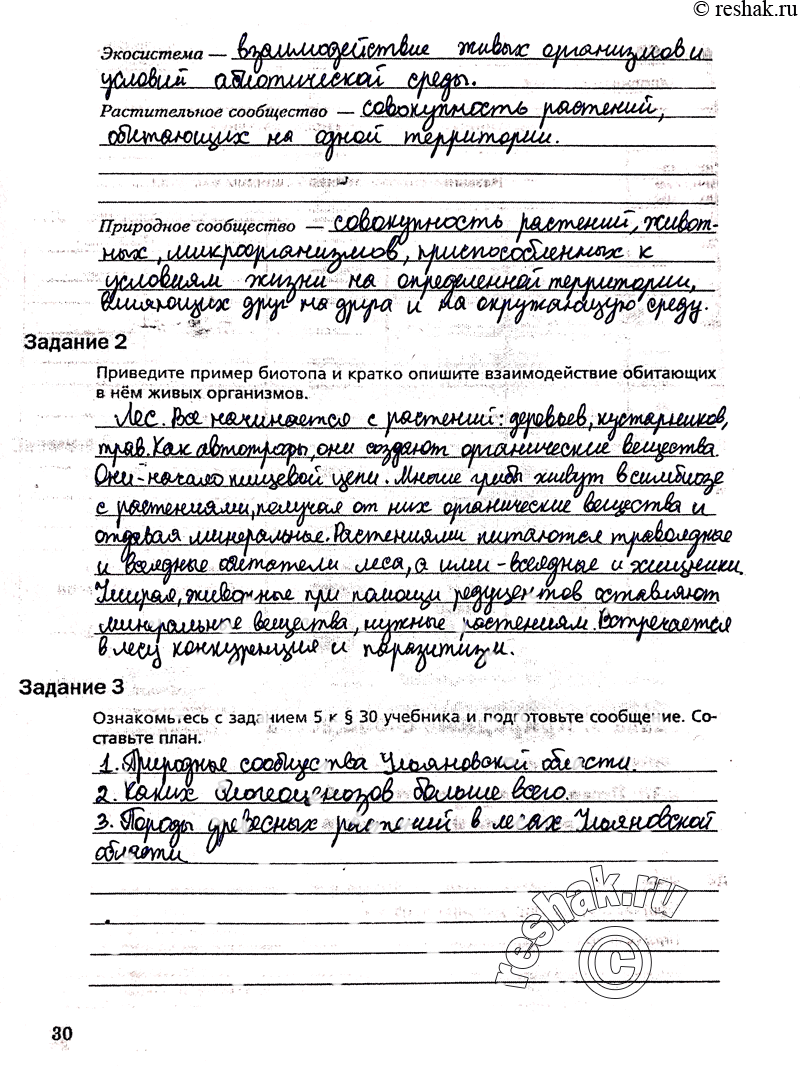 © reshak.ru
Экосистема — взаимодействие живых организмов и
условий абиотической среды.
Растительное сообщество — совокупность растений,
обитающих на одной территории.
Природное сообщество — совокупность растений, живот-
ных, микроорганизмов, приспособленных к
условиям жизни на определенной территории,
влияющих друг на друга и на окружающую среду.
Задание 2
Приведите пример биотопа и кратко опишите взаимодействие обитающих
в нём живых организмов.
Лес. Все начинается с растений: деревьев, кустарников,
трав. Как автотрофы, они создают органические вещества.
Они - начало пищевой цепи. Многие грибы живут в симбиозе
с растениями, получая от них органические вещества и
отдавая минеральные. Растениями питаются травоядные
и всеядные обитатели леса, а ими - всеядные и хищники.
Умирая, животные при помощи редуцентов оставляют
минеральные вещества, нужные растениям. Встречается
в лесу конкуренция и паразитизм.
Задание 3
Ознакомьтесь с заданием 5 к § 30 учебника и подготовьте сообщение. Со-
ставьте план.
1. Природные сообщества Ульяновской области.
2. Каких биогеоценозов больше всего.
3. Породы древесных растений в лесах Ульяновской
области
reshak.ru
©
30